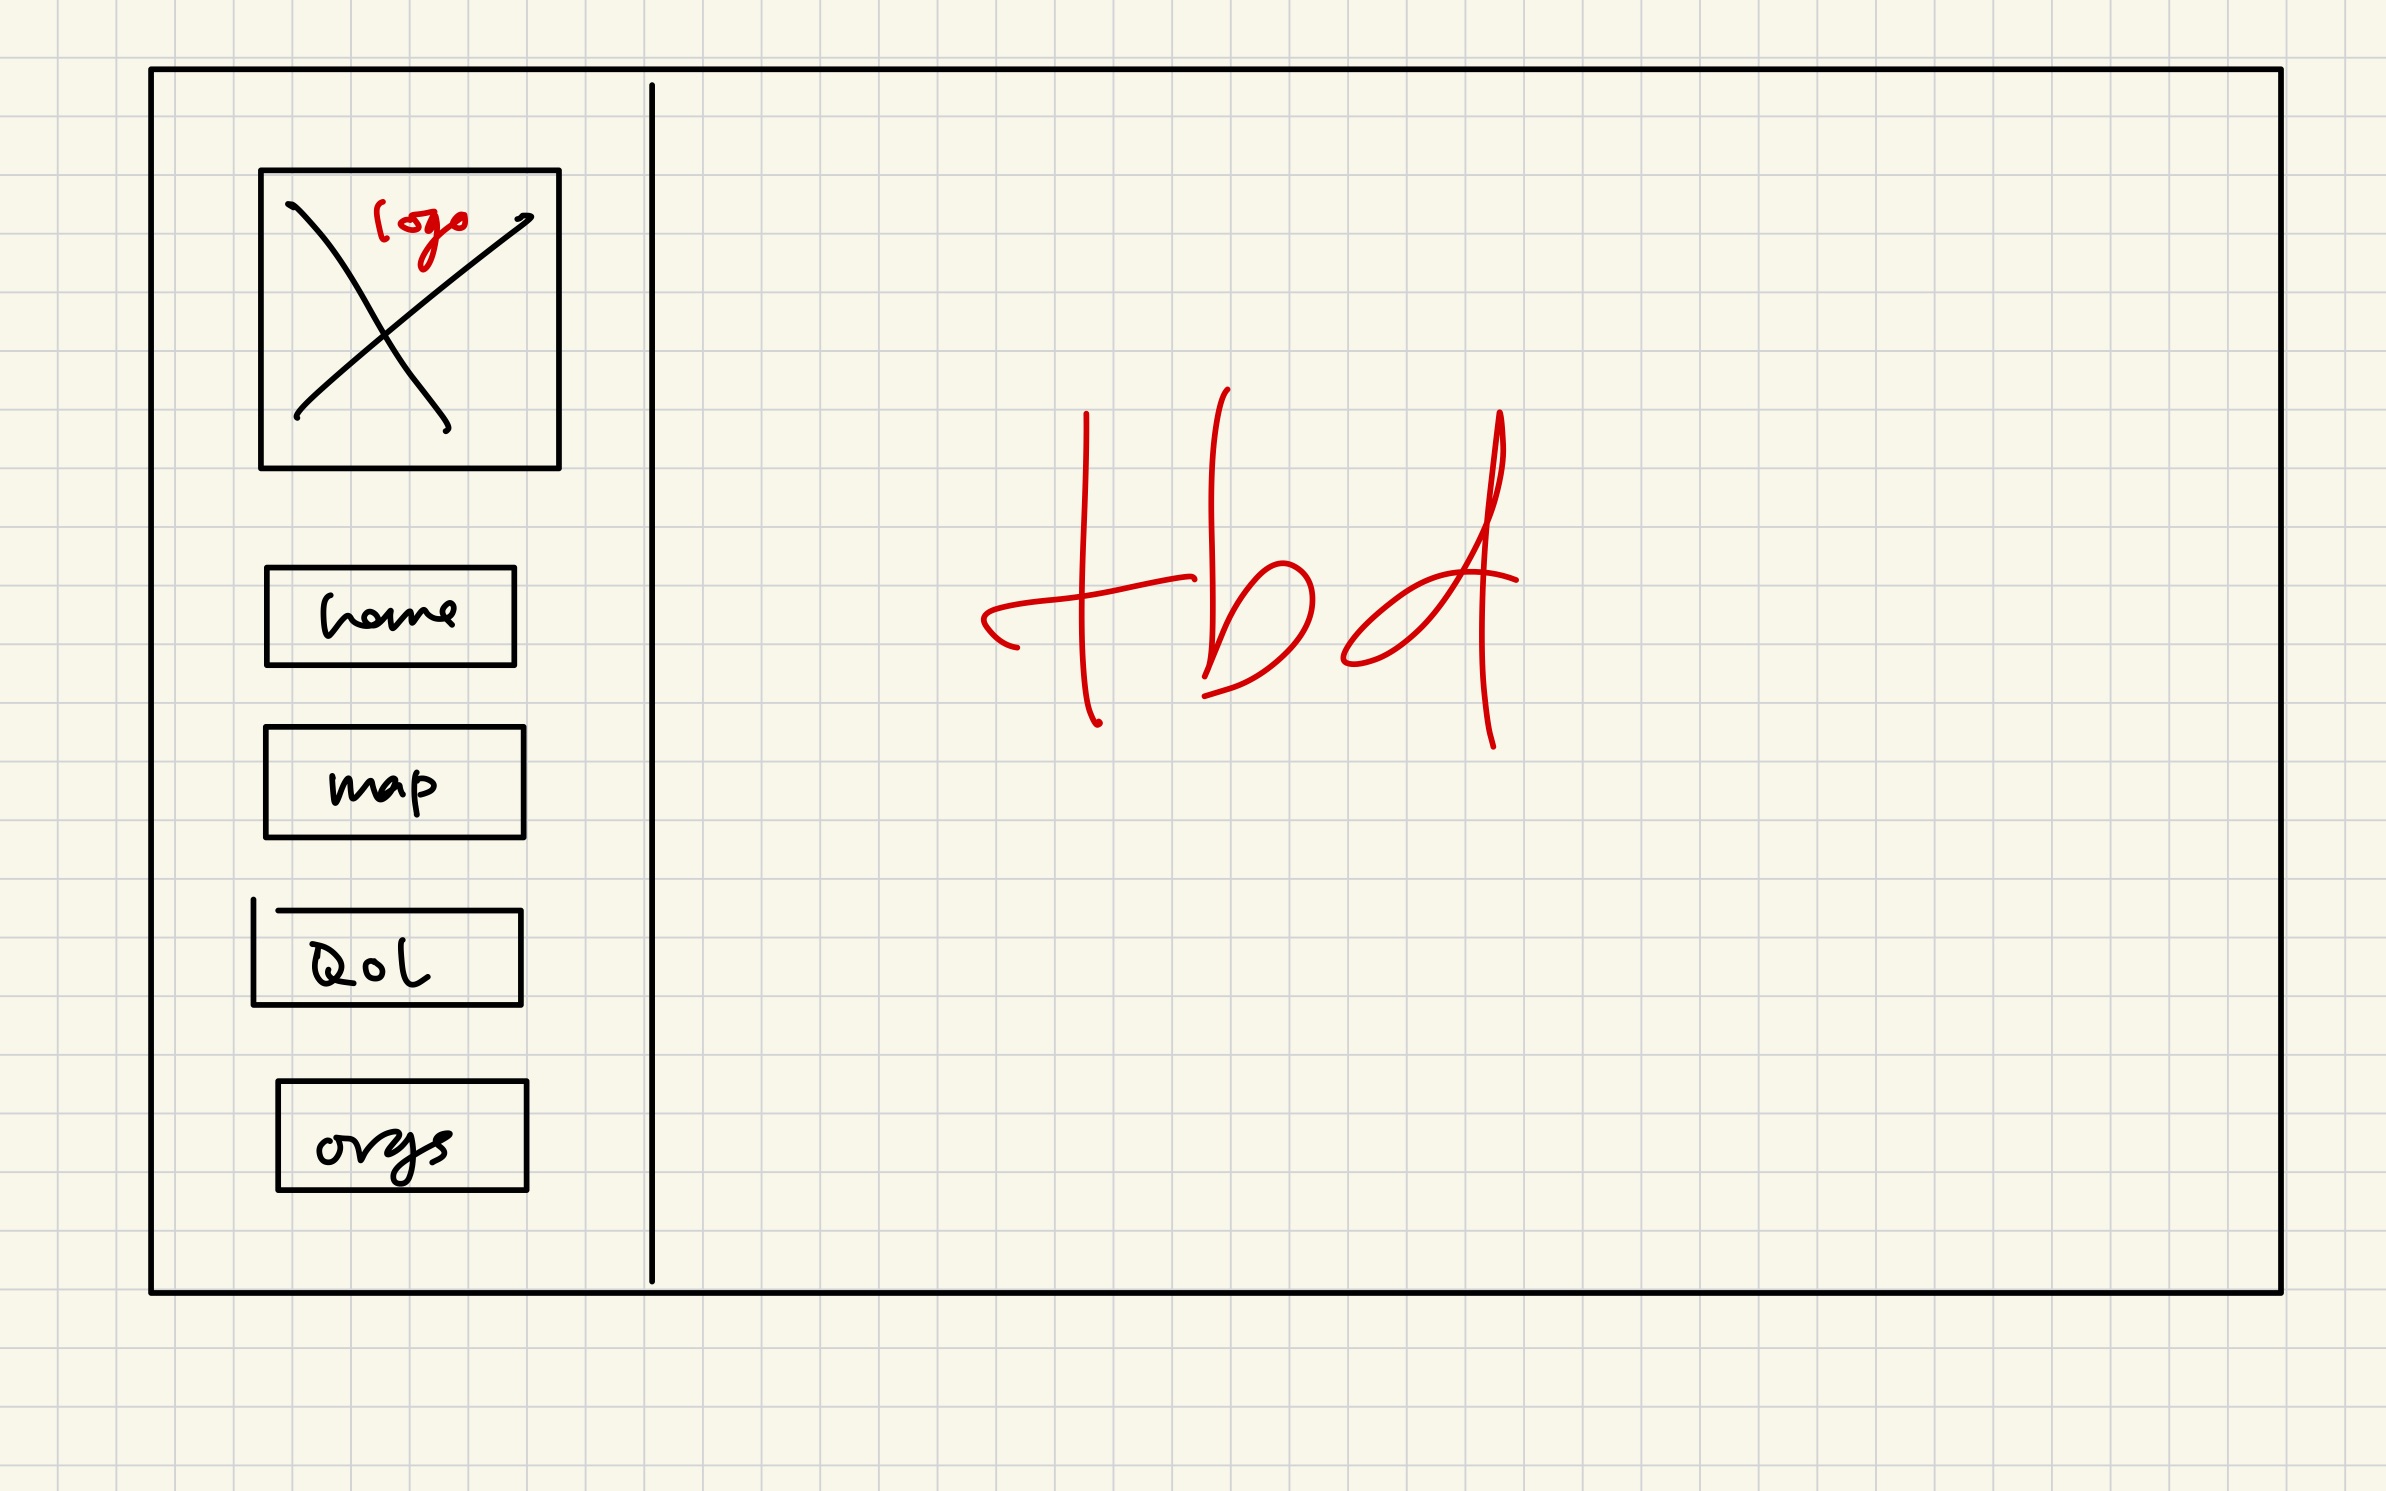 Logo
home
map
QoL
orgs
tbd